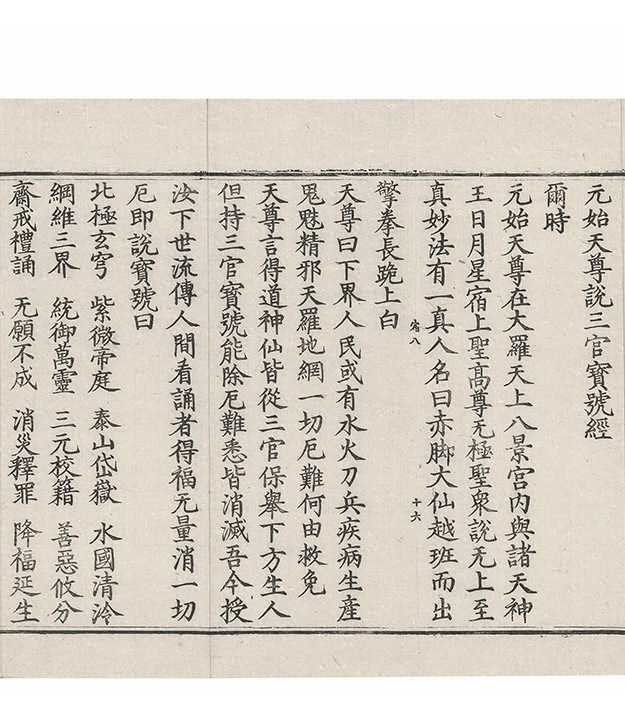 元始天尊說三官寳號經
爾時
元始天尊在大羅天上八景宫内與諸天神
王日月星宿上聖髙尊无極聖衆說无上至
真妙法有一真人名曰赤脚大仙越班而出
宿八 十六
擎拳長跪上白
天尊曰下界人民或有水火刀兵疾病生産
鬼魅精邪天羅地網一切厄難何由救免
天尊言得道神仙皆從三官保舉下方生人
但持三官寳號能除厄難悉皆消滅吾今授
汝下世流傳人間看誦者得福无量消一切
厄即說寳號曰
北極玄穹 紫微帝庭 泰山岱嶽 水國清泠
綱維三界 統御萬靈 三元校籍 善惡攸分
齋戒禮誦 无願不成 消災釋罪 降福延生